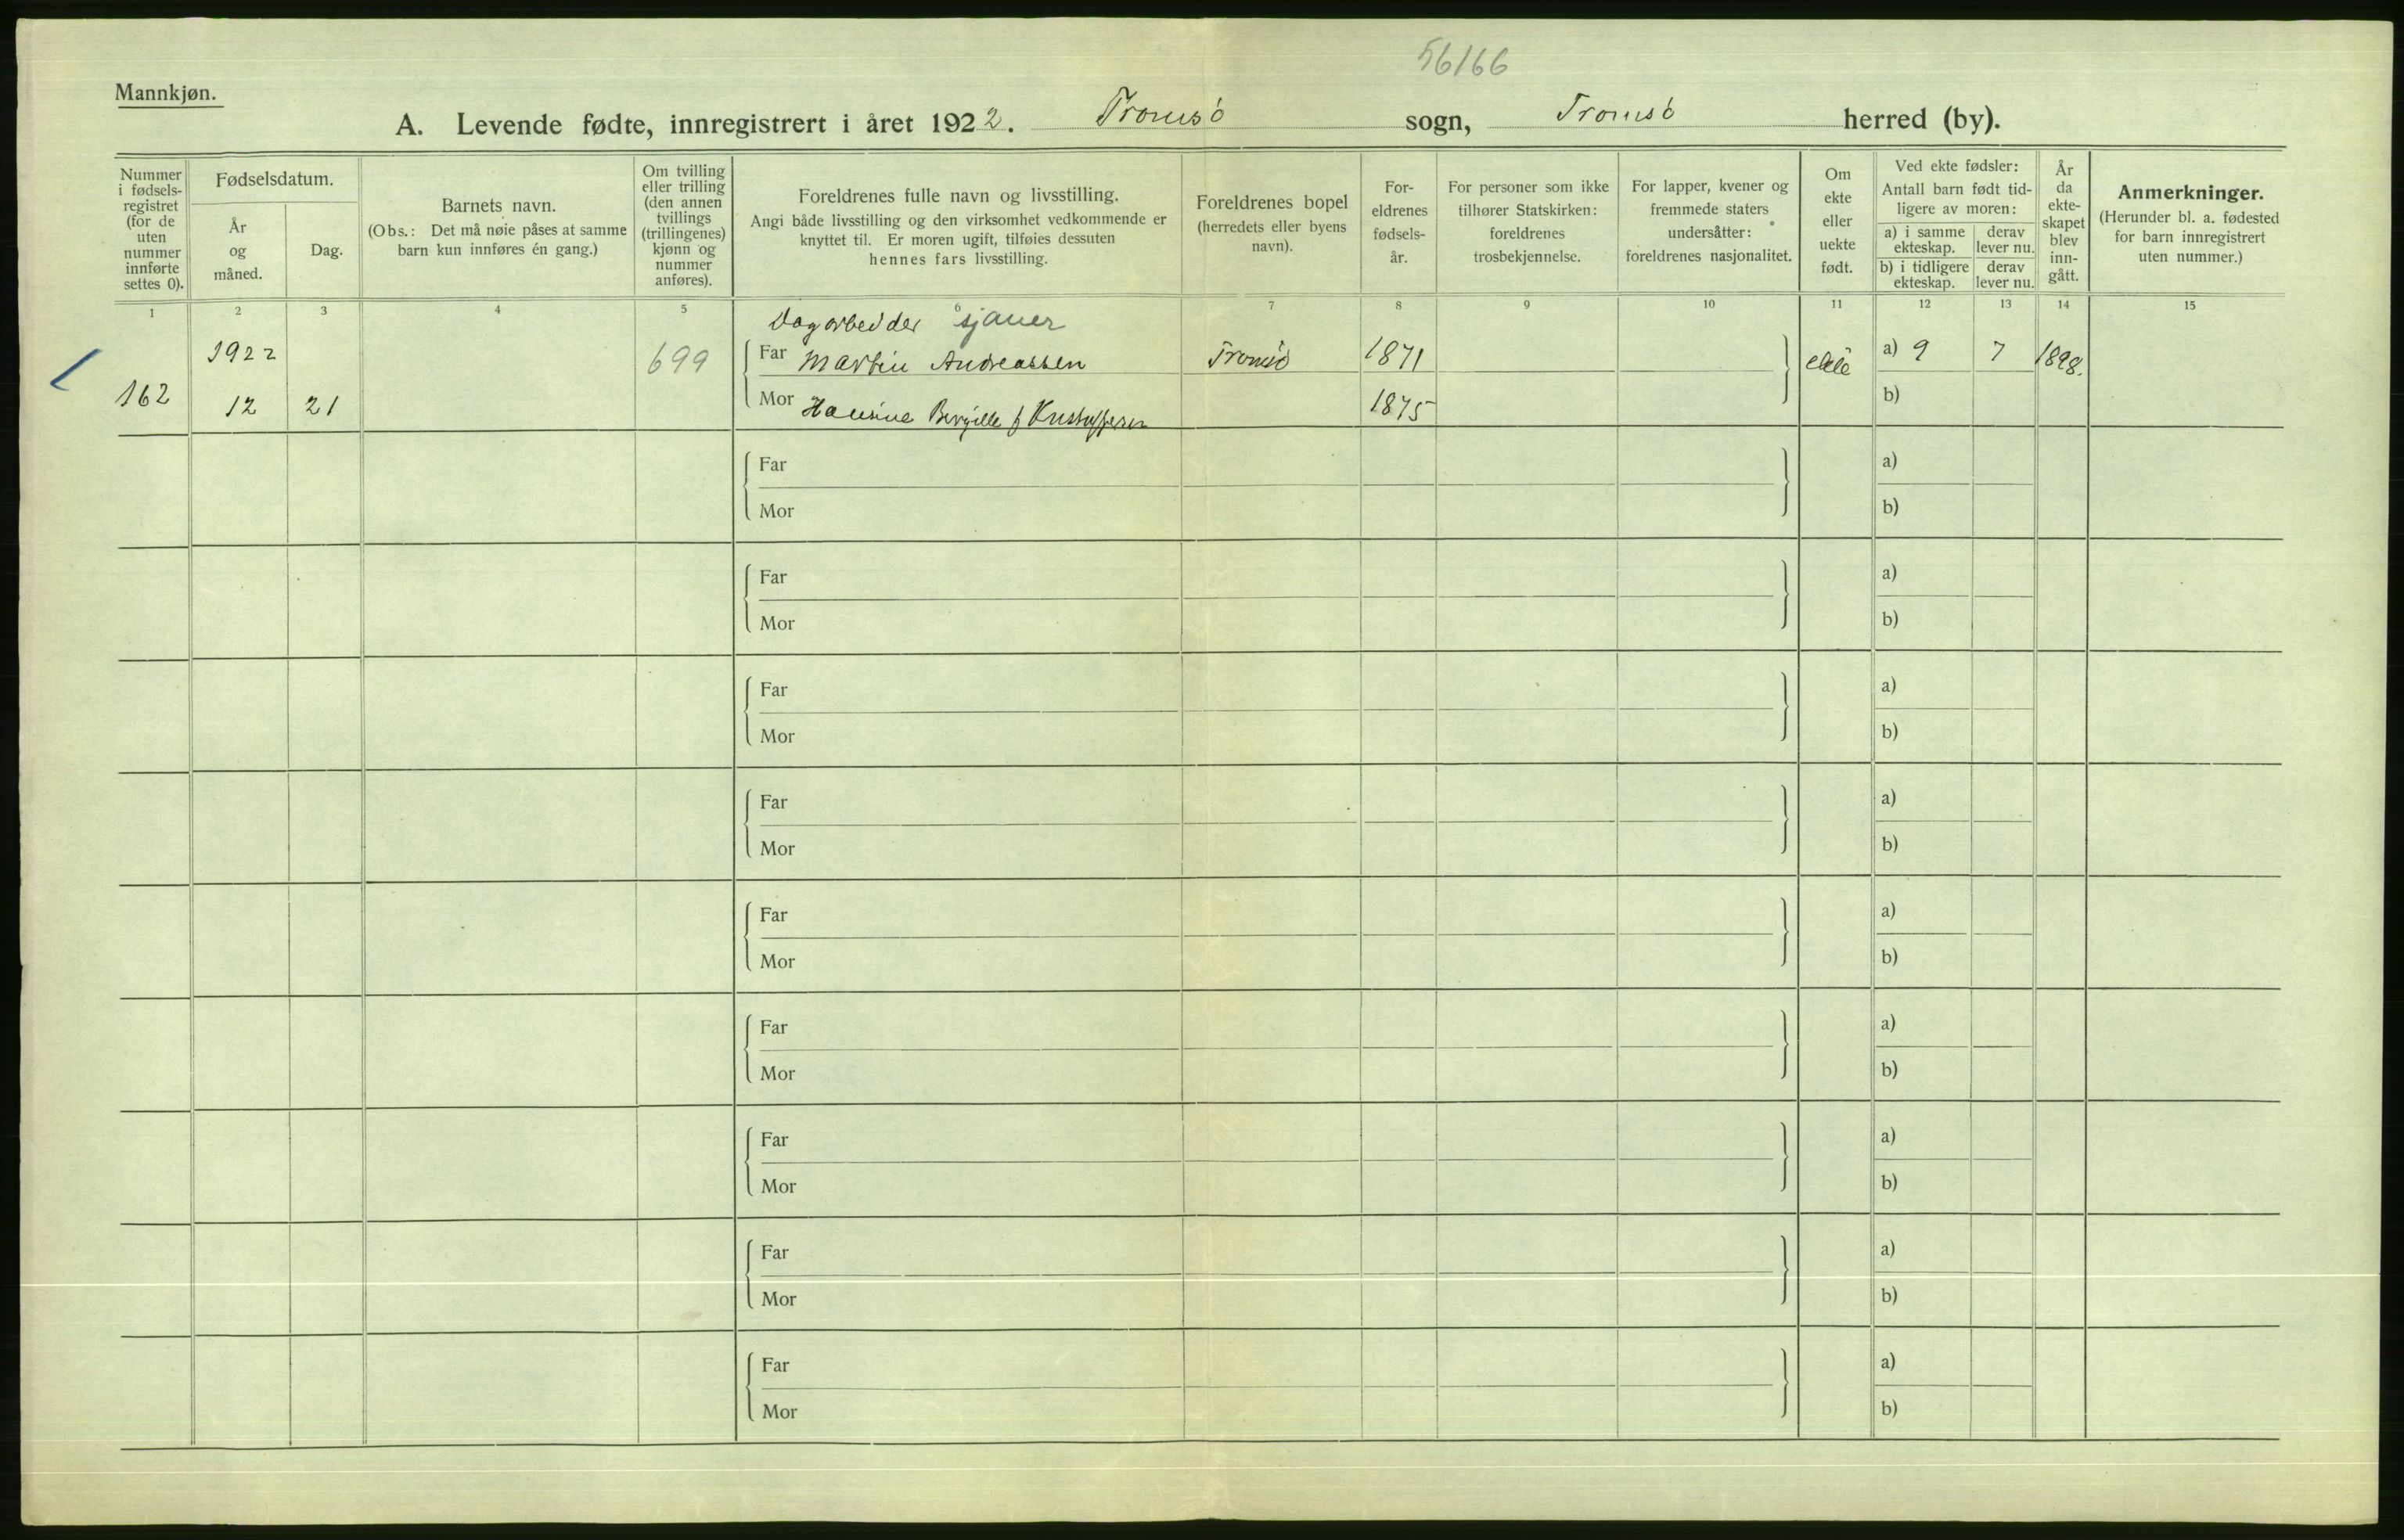 56166
Mannkjøn.
A. Levende fødte, innregistrert i året 1922. Tromsö sogn, Tromsö herred (by).
Nummer
i fødsels-
registret
(for de
uten
nummer
innførte
settes 0).
Fødselsdatum.
År
og
måned.
Dag.
Barnets navn.
(Obs.: Det må nøie påses at samme
barn kun innføres én gang.)
Om tvilling
eller trilling
(den annen
tvillings
(trillingenes)
kjønn og
nummer
anføres).
Foreldrenes fulle navn og livsstilling.
Angi både livsstilling og den virksomhet vedkommende er
knyttet til. Er moren ugift, tilføies dessuten
hennes fars livsstilling.
Foreldrenes bopel
(herredets eller byens
navn).
For-
eldrenes
fødsels-
år.
For personer som ikke
tilhører Statskirken:
foreldrenes
trosbekjennelse.
For lapper, kvener og
fremmede staters
undersåtter:
foreldrenes nasjonalitet.
Om
ekte
eller
uekte
født.
Ved ekte fødsler:
Antall barn født tid-
ligere av moren:
a) i samme
ekteskap.
derav
lever nu.
b) i tidligere
ekteskap.
derav
lever nu.
År
da
ekte-
skapet
blev
inn-
gått.
Anmerkninger.
(Herunder bl. a. fødested
for barn innregistrert
uten nummer.)
1 2 3 4 5 6 7 8 9 10 11 12 13 14 15
Dagarbeider sjauer
1922 699 Far Martin Andreassen Tromsö 1871 ekte a) 9 7 1898.
162 12 21 Mor Hansine Bergitte f Kristoffersen 1875 b)
Far a)
Mor b)
Far a)
Mor b)
Far a)
Mor b)
Far a)
Mor b)
Far a)
Mor b)
Far a)
Mor b)
Far a)
Mor b)
Far a)
Mor b)
Far a)
Mor b)